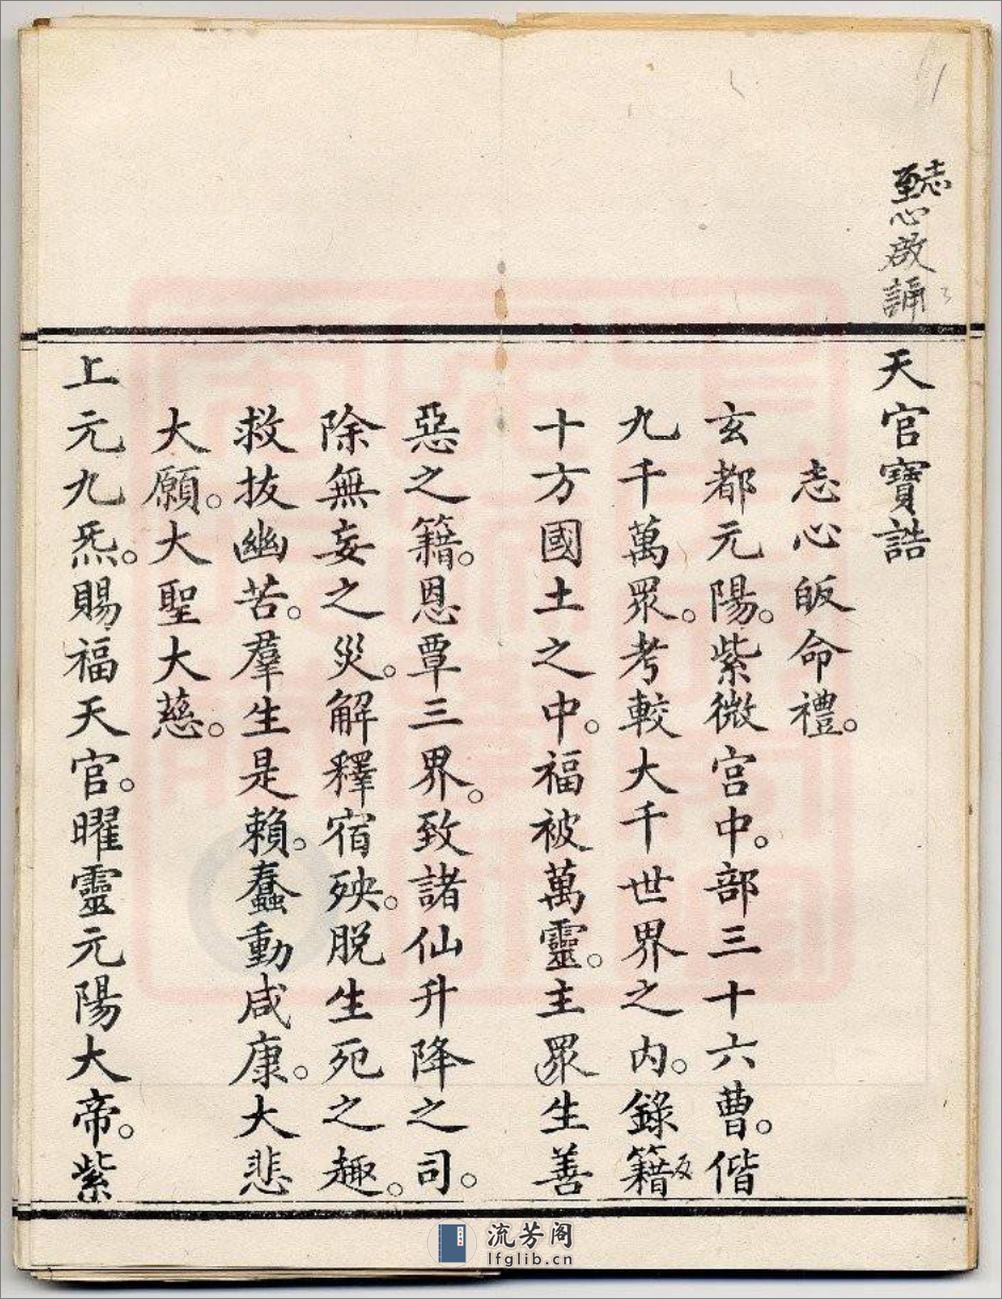 志心啟誦
天官寶誥
志心皈命禮。
玄都元陽。紫微宮中。部三十六曹。偕
九千萬眾。考較大千世界之內。錄籍
十方國土之中。福被萬靈。主眾生善
惡之籍。恩覃三界。致諸仙升降之司。
除無妄之災。解釋宿殃。脫生死之趣。
救拔幽苦。羣生是賴。蠢動咸康。大悲
大願。大聖大慈。
上元九炁。賜福天官。曜靈元陽大帝。紫
流芳阁
lfglib.cn